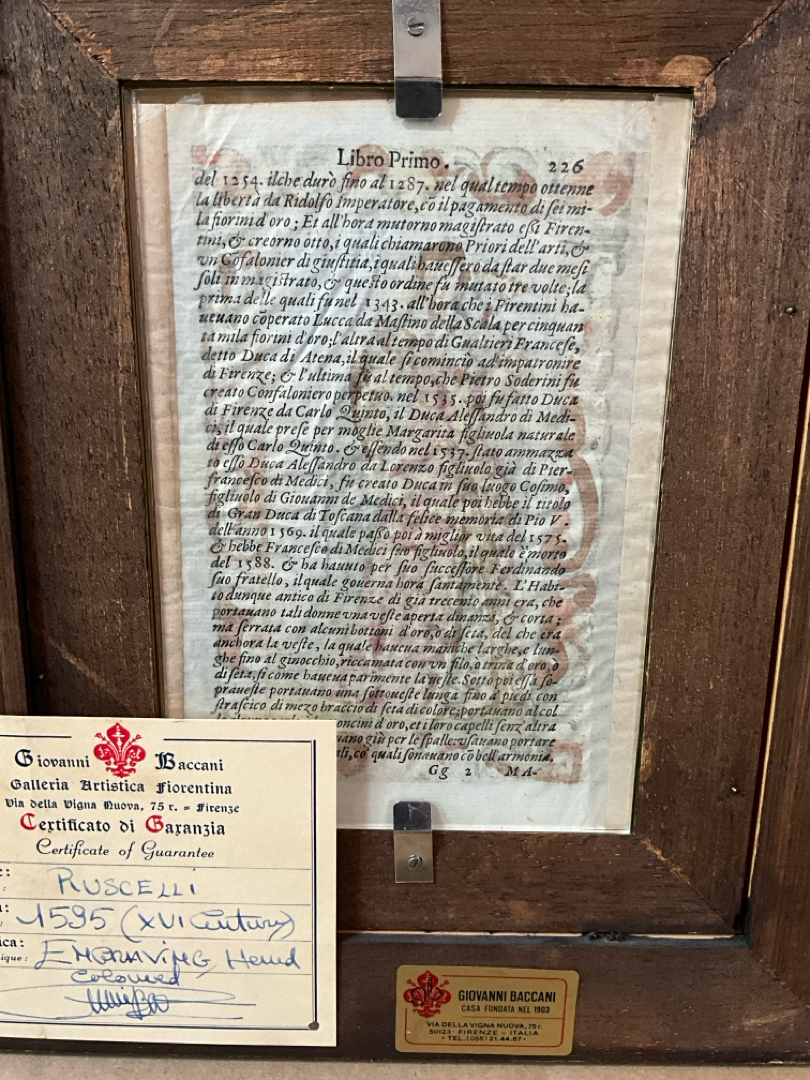 Libro Primo. 226
del 1254. ilche durò fino al 1287. nel qual tempo ottenne
la libertà da Ridolfo Imperatore, cõ il pagamento di ſei mi-
la fiorini d'oro; Et all'hora mutorno magiſtrato eſsi Firen-
tini, & creorno otto, i quali chiamarono Priori dell'arti, &
vn Cõfalonier di giuſtitia, i quali haueſſero da ſtar due meſi
ſoli in magiſtrato, & queſto ordine fu mutato tre volte; la
prima delle quali fu nel 1343. all'hora che i Firentini ha-
ueuano cõperato Lucca da Maſtino della Scala per cinquan
ta mila fiorini d'oro; l'altra al tempo di Gualtieri Franceſe,
detto Duca di Atena, il quale ſi cominciò ad impatronire
di Firenze; & l'ultima fù al tempo, che Pietro Soderini fu
creato Confaloniero perpetuo. nel 1535. poi fu fatto Duca
di Firenze da Carlo Quinto, il Duca Aleſſandro di Medi-
ci, il quale preſe per moglie Margarita figliuola naturale
di eſſo Carlo Quinto. & eſſendo nel 1537. ſtato ammazza
to eſſo Duca Aleſſandro da Lorenzo figliuolo già di Pier-
franceſco di Medici, fu creato Duca in ſuo luogo Coſimo,
figliuolo di Giouanni de Medici, il quale poi hebbe il titolo
di Gran Duca di Toſcana dalla felice memoria di Pio V.
dell'anno 1569. il quale paſſò poi à miglior vita del 1575.
& hebbe Franceſco di Medici ſuo figliuolo, il quale è morto
del 1588. & ha hauuto per ſuo ſucceſſore Ferdinando
ſuo fratello, il quale gouerna hora ſantamente. L'Habi-
to dunque antico di Firenze di già trecento anni era, che
portauano tali donne vna veſte aperta dinanzi, & corta;
ma ſerrata con alcuni bottoni d'oro, ò di ſeta, del che era
anchora la veſte, la quale haueua maniche larghe, e lun-
ghe fino al ginocchio, riccamata con vn filo, ò trina d'oro, ò
di ſeta, ſi come haueua parimente la veſte. Sotto poi eſſa ſo-
praueſte portauano una ſottoueſte lunga fino a piedi con
ſtraſcico di mezo braccio di ſeta di colore; portauano al col
oncini d'oro, et i loro capelli ſenz'altra
uano giù per le ſpalle: vſauano portare
ali, co' quali ſonauano cõ bell'armonia.
Gg 2 MA-
Giovanni Baccani
Galleria Artistica Fiorentina
Via della Vigna Nuova, 75 r. = Firenze
Certificato di Garanzia
Certificate of Guarantee
RUSCELLI
1595 (XVI Century)
ica:
ique: ENGRAVING, Hand
Coloured
GIOVANNI BACCANI
CASA FONDATA NEL 1903
VIA DELLA VIGNA NUOVA, 75 r.
50123 - FIRENZE - ITALIA
• TEL. (055) 21.44.67 •